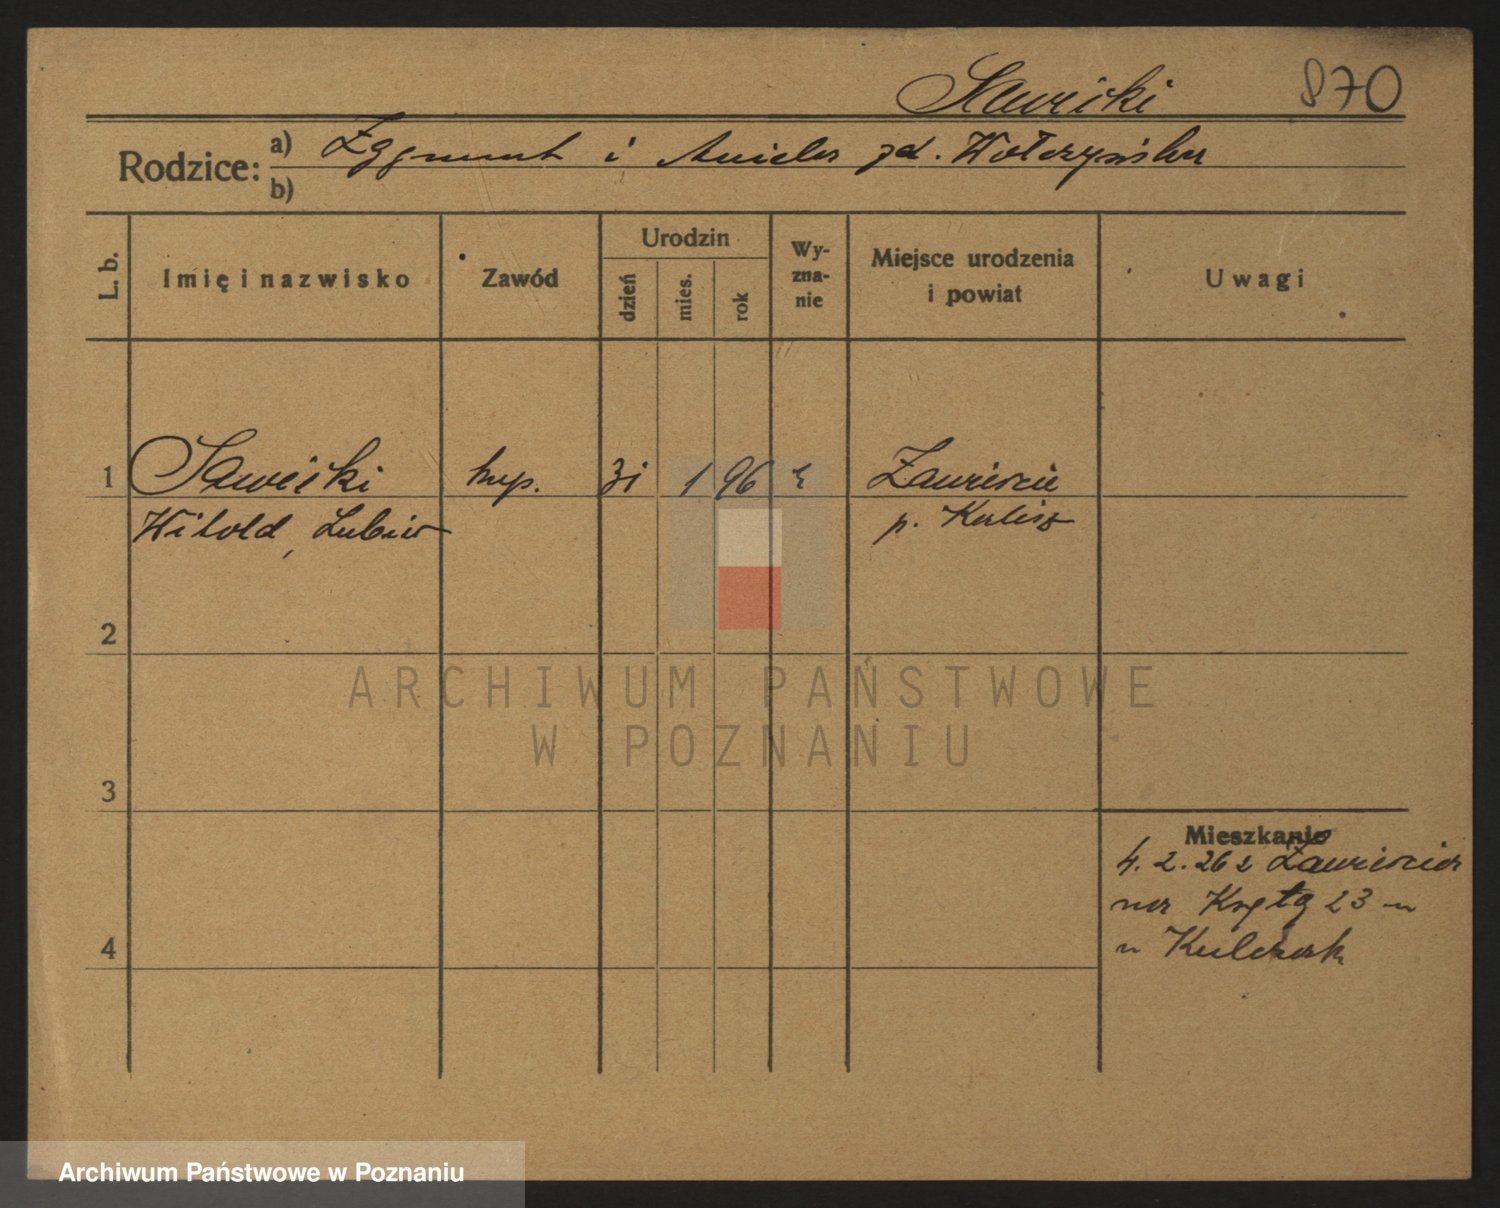 Sawicki 870
Rodzice: a) Zygmunt i Aniela zd. Wołczyńska
b)
L. b. Imię i nazwisko Zawód Urodzin dzień mies. rok Wy-zna-nie Miejsce urodzenia i powiat Uwagi
1 Sawicki kup. 31 1 96 Zawiercie
Witold, Lubin p. Kalisz
2
ARCHIWUM PAŃSTWOWE
W POZNANIU
3
Mieszkanie
4. 2. 26 z Zawiercia
na 23
4 u Kulczak
Archiwum Państwowe w Poznaniu